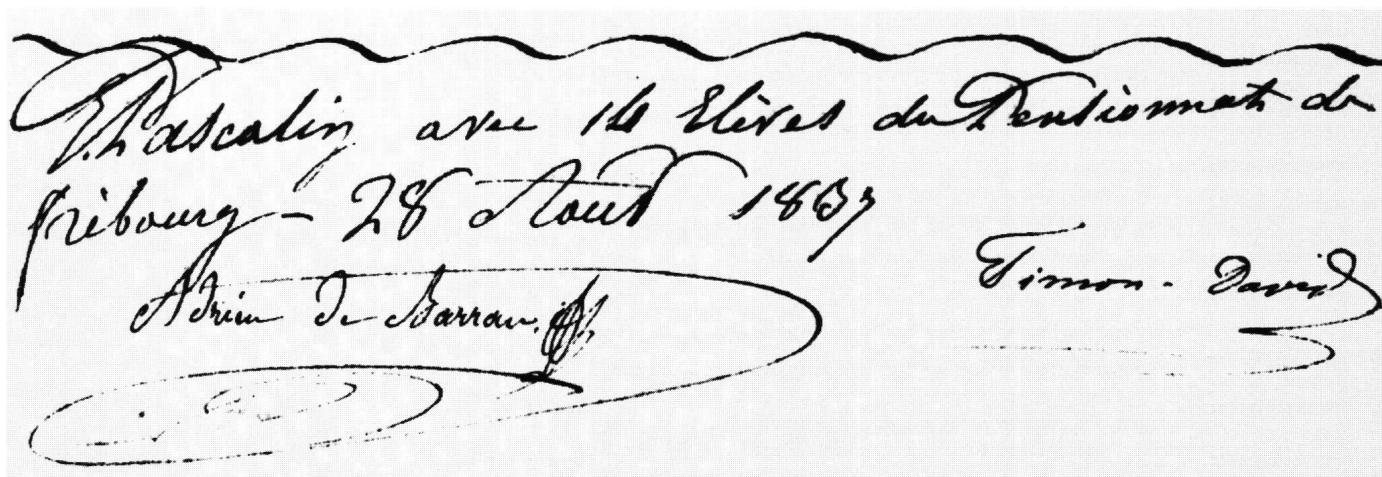 Pascalin avec 14 Elèves du Pensionnat de
fribourg - 28 Aout 1837
Adrien De Barrau.
Timon-David